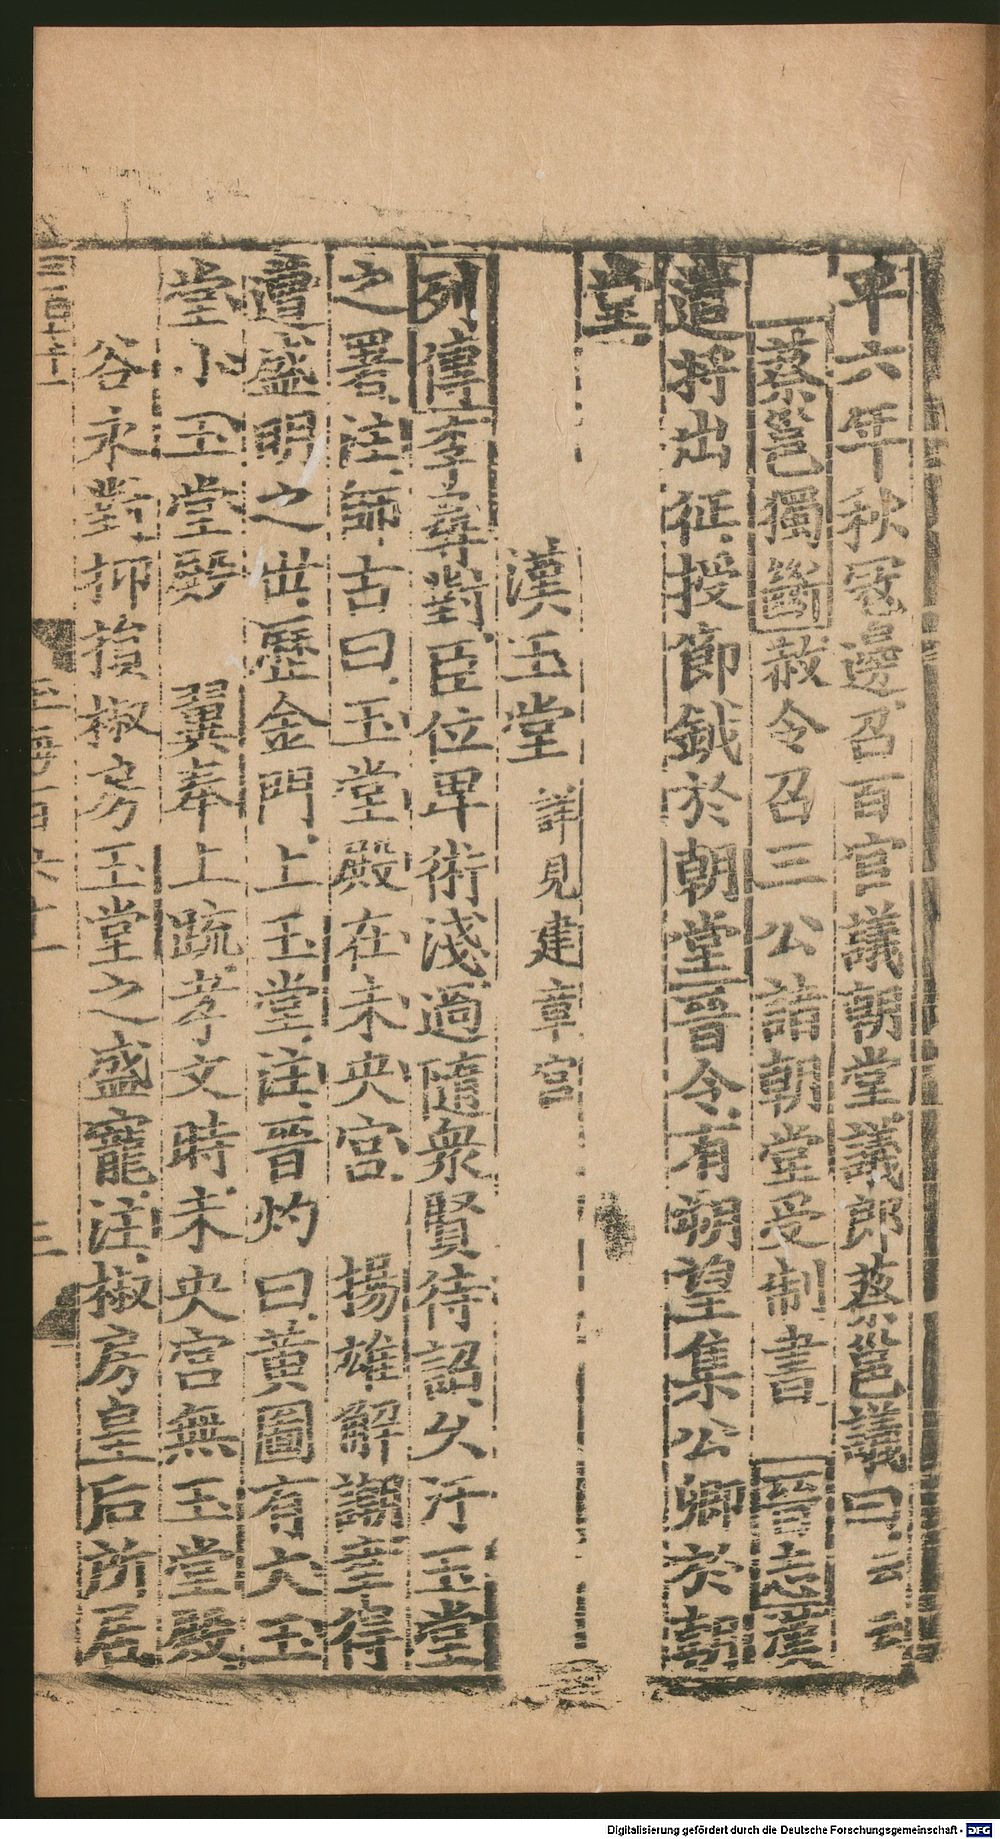 平六年秋冦邊召百官議朝堂議郎蔡邕議曰云云
蔡邕獨斷赦令召三公詣朝堂受制書　晉志漢
遣將出征授節鉞於朝堂晉令有朔望集公卿於朝
堂
漢玉堂 詳見建章宮
列傳李尋對臣位卑術淺過隨衆賢待詔久汙玉堂
之署注師古曰玉堂殿在未央宮　揚雄解謝韋得
遭盛明之丗歷金門上玉堂注晉灼曰黃圖有大玉
堂小玉堂殿　翼奉上疏孝文時未央宮無玉堂殿
谷永對抑損椒房玉堂之盛寵注椒房皇后所居
三百十一
玉海百六十一
三
Digitalisierung gefördert durch die Deutsche Forschungsgemeinschaft - DFG